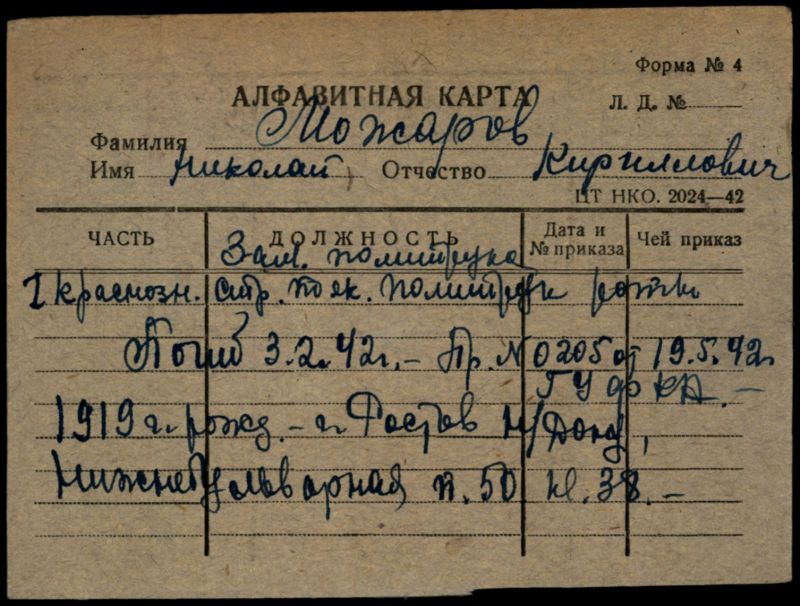 Форма № 4
АЛФАВИТНАЯ КАРТА
Л. Д. №
Фамилия Можаров
Имя Николай Отчество Кириллович
ЦТ НКО. 2024—42
ЧАСТЬ ДОЛЖНОСТЬ Дата и № приказа Чей приказ
Зам. политрука
1 краснозн. стр. полк. политрук роты
Погиб 3.2.42г. – Пр. N 0205 от 19.5.42г
ГУФКА. –
1919 г. рожд. – г. Ростов н/Дону,
Нижнебульварная п. 50 кв. 38. –